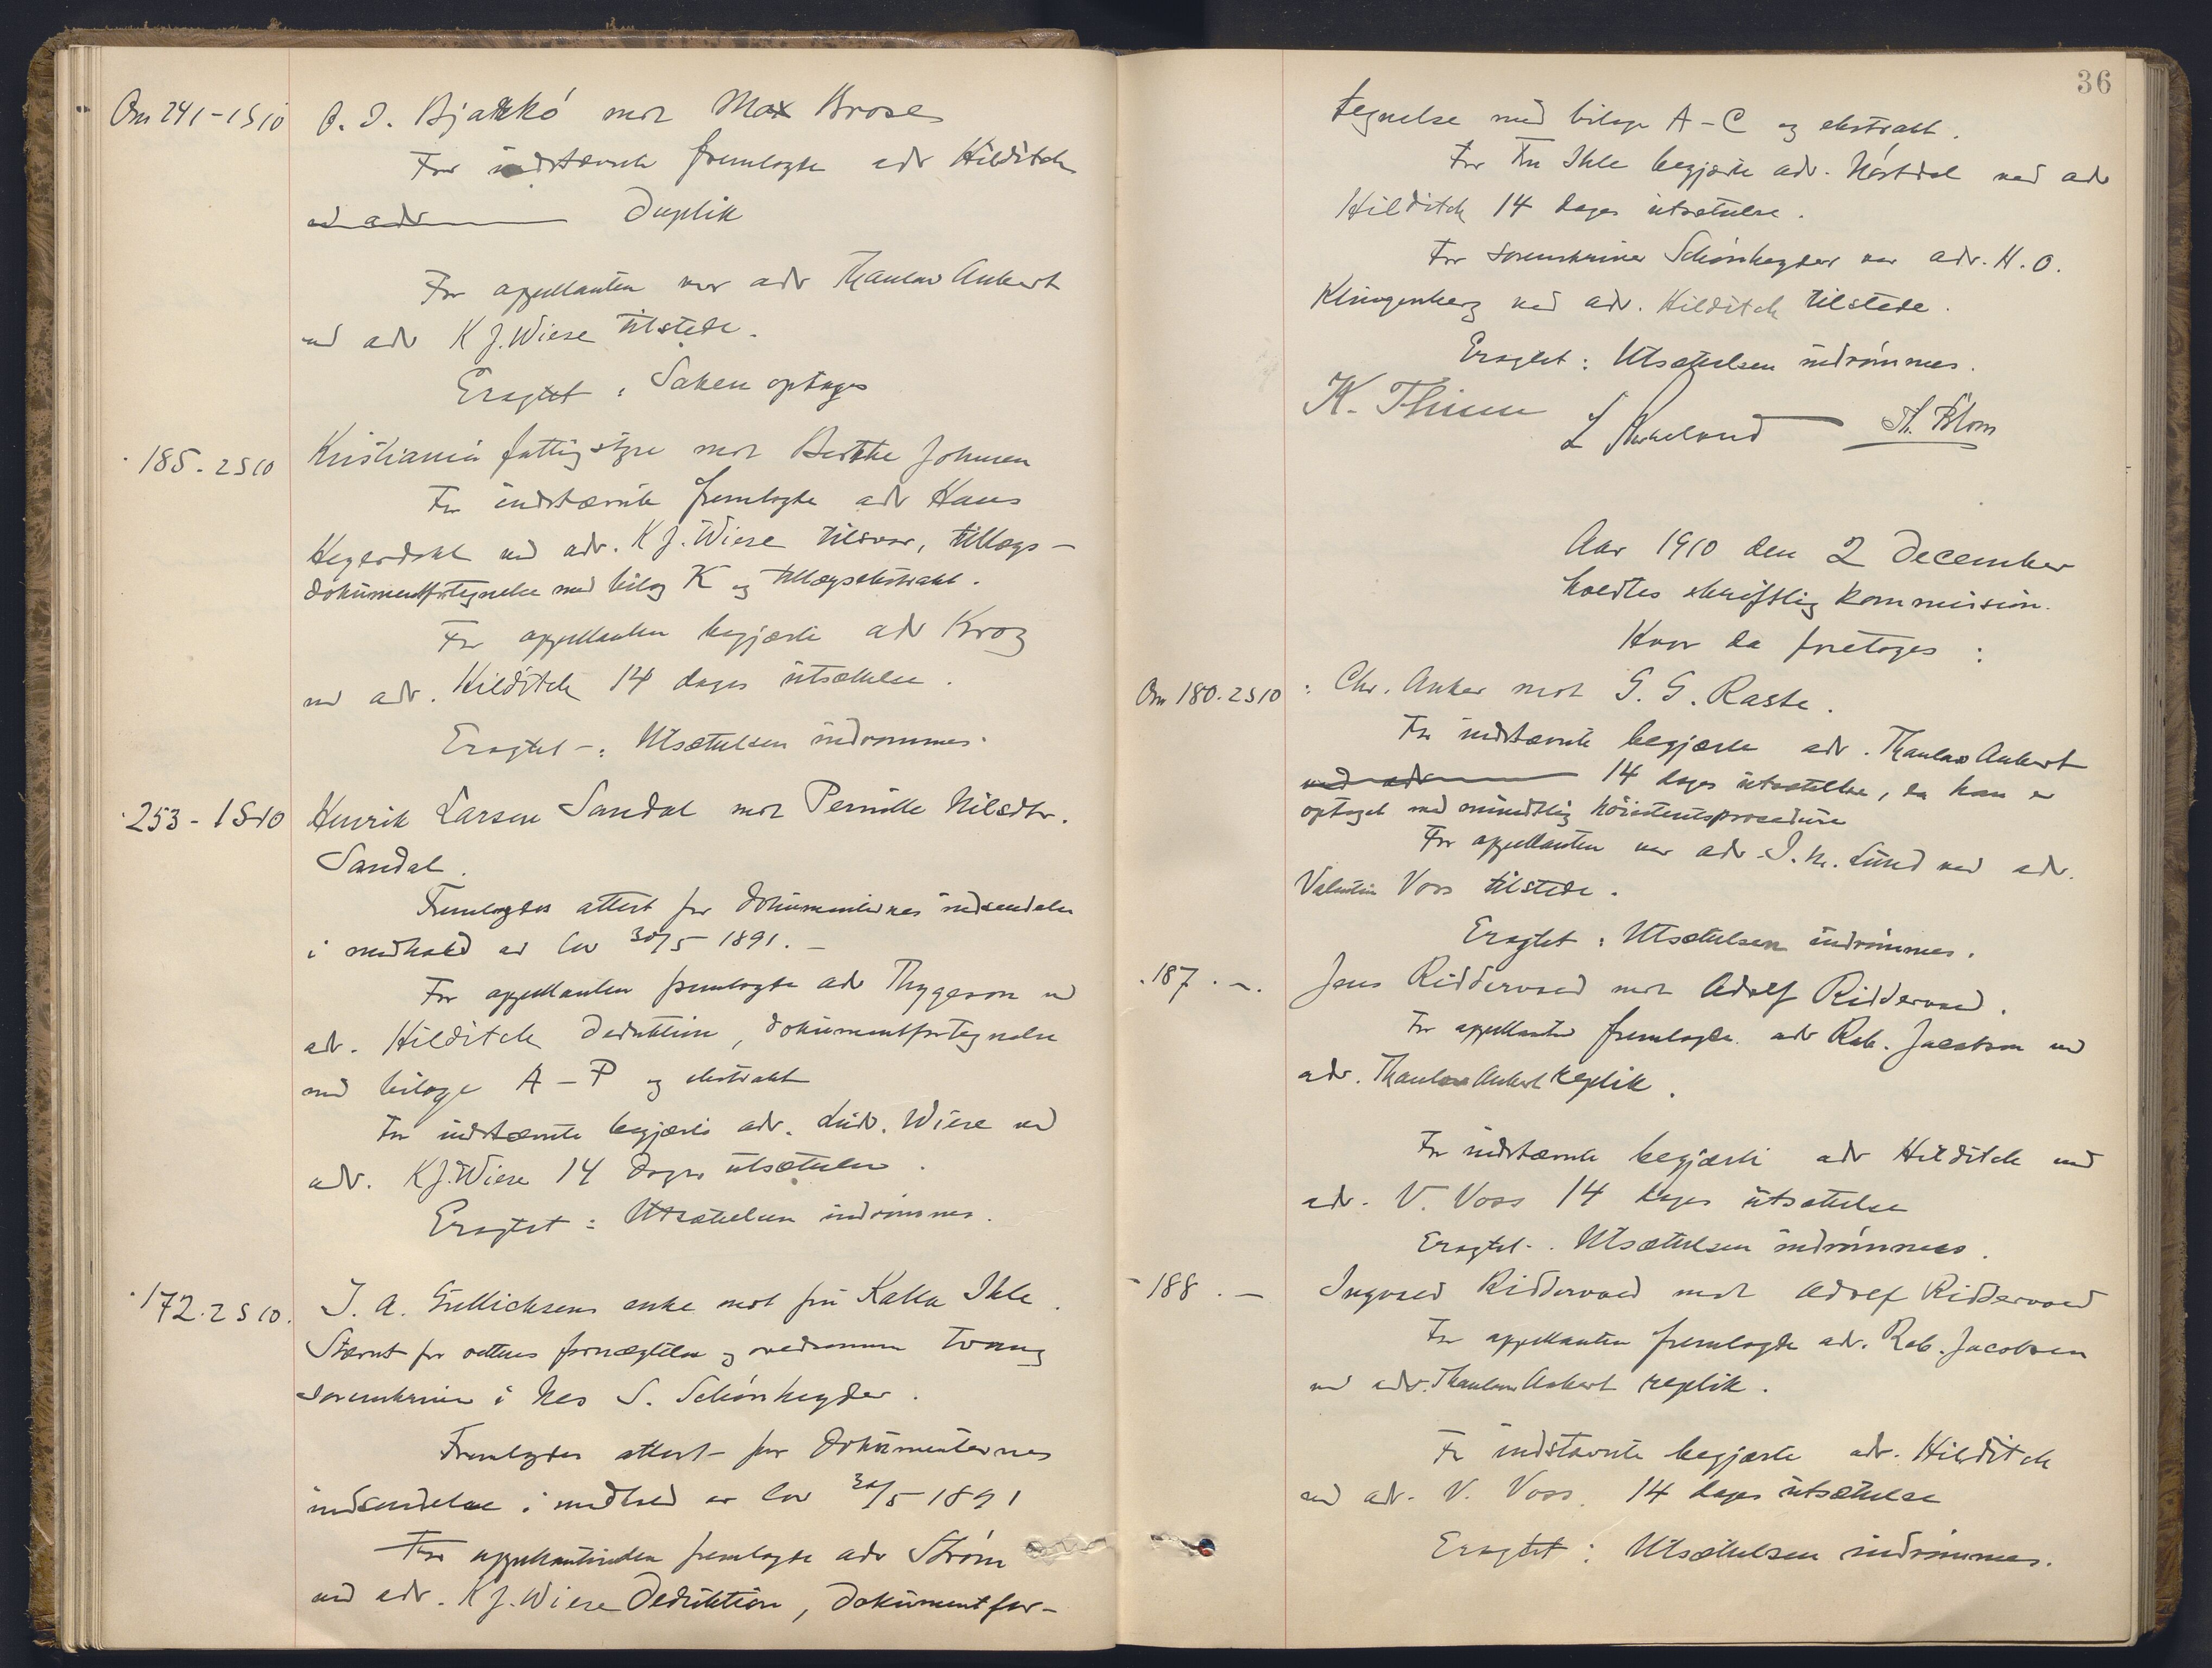 Om 241-1S10 O. J. Bjarkö mot Max Brose
For indstævnte fremlagde adv Hilditch
ved adv Duplik
For appellanten var adv Thaulow Aubert
ved adv K J. Wiese tilstede.
Eragtet: Saken optages
185. 2S10 Kristiania fattigstyre mot Berthe Johnsen
For indstævnte fremlagde adv Hans
Hegerdahl ved adv. K J. Wiese tilsvar, tillægs-
dokumentfortegnelse med bilag K og tillægsekstrakt.
For appellanten begjærte adv Krog
ved adv. Hilditch 14 dages utsættelse.
Eragtet: Utsættelsen indrømmes.
253-1S10 Henrik Larsen Sandal mot Pernille Nilsdtr.
Sandal.
Fremlagdes attest for dokumenternes indsendelse
i medhold av lov 30/5 1891.-
For appellanten fremlagde adv Thygeson ved
adv. Hilditch Deduktion, dokumentfortegnelse
med bilage A-P og ekstrakt
For indstævnte begjærte adv. Ludv. Wiese ved
adv. K J. Wiese 14 dages utsættelse.
Eragtet: Utsættelsen indrømmes.
172. 2S10. J. A. Gullicksens enke mot fru Kalla Ihle.
Stævnt for rettens fornægtelse og meddommer
sorenskriver i Nes S. Schönheyder.
Fremlagdes attest for dokumenternes
indsendelse i medhold av lov 30/5 1891
For appellantinden fremlagde adv Strøm
ved adv. K J. Wiese Deduktion, Dokumentfor-
36
tegnelse med bilage A-C og ekstrakt.
For Fru Ihle begjærte adv. Nørstdal ved adv
Hilditch 14 dages utsættelse.
For sorenskriver Schönheyder var adv. H. O.
Klingenberg ved adv. Hilditch tilstede.
Eragtet: Utsættelsen indrømmes.
K. Thinn L Th. Blom
Aar 1910 den 2 December
holdtes skriftlig kommission.
Hvor da foretoges:
Om 180. 2S10: Chr. Anker mot G. G. Raste.
For indstævnte begjærte adv. Thaulow Aubert
ved adv 14 dages utsættelse, da han er
optaget med mundtlig höiesteretsprocedure
For appellanten var adv. J. M. Lund ved adv.
Valentin Voss tilstede.
Eragtet: Utsættelsen indrømmes.
187.-. Jens Riddervoed mot Adolf Riddervoed.
For appellanten fremlagde adv Rab. Jacobsen ved
adv. Thaulow Aubert replik.
For indstævnte begjærte adv Hilditch ved
adv. V. Voss 14 dages utsættelse
Eragtet: Utsættelsen indrømmes.
188.- Ingvoed Riddervoed mot Adolf Riddervoed
For appellanten fremlagde adv. Rab. Jacobsen
ved adv. Thaulow Aubert replik.
For indstævnte begjærte adv. Hilditch
ved adv. V. Voss. 14 dages utsættelse
Eragtet: Utsættelsen indrømmes.